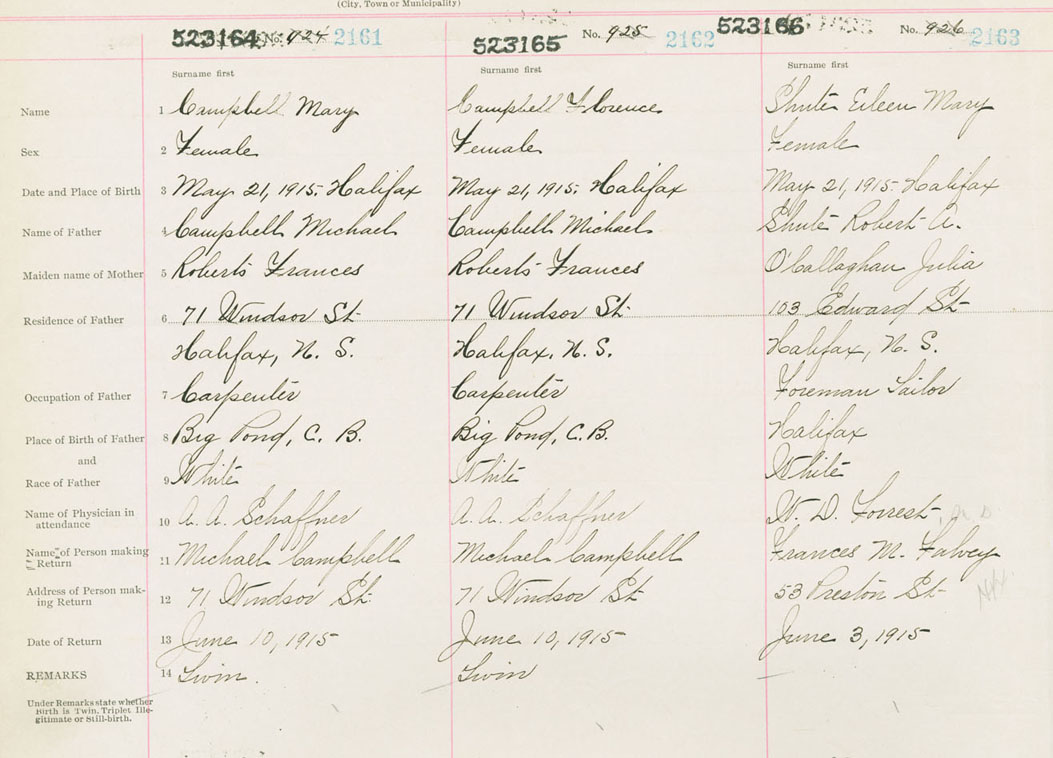 (City, Town or Municipality)
523164 No. 924 2161
523165 No. 925 2162
523166 No. 926 2163
Surname first Surname first Surname first
Name 1 Campbell Mary Campbell Florence Shute Eileen Mary
Sex 2 Female Female Female
Date and Place of Birth 3 May 21, 1915. Halifax May 21, 1915. Halifax May 21, 1915. Halifax
Name of Father 4 Campbell Michael Campbell Michael Shute Robert A.
Maiden name of Mother 5 Roberts Frances Roberts Frances O'Callaghan Julia
Residence of Father 6 71 Windsor St. 71 Windsor St. 103 Edward St.
Halifax, N. S. Halifax, N. S. Halifax, N. S.
Occupation of Father 7 Carpenter Carpenter Foreman Tailor
Place of Birth of Father 8 Big Pond, C. B. Big Pond, C. B. Halifax
and
Race of Father 9 White White White
Name of Physician in
attendance 10 A. A. Schaffner A. A. Schaffner W. D. Forrest
Name of Person making
Return 11 Michael Campbell Michael Campbell Frances M. Falvey
Address of Person mak-
ing Return 12 71 Windsor St. 71 Windsor St. 53 Preston St.
Date of Return 13 June 10, 1915 June 10, 1915 June 3, 1915
REMARKS 14 Twin. Twin
Under Remarks state whether
Birth is Twin, Triplet, Ille-
gitimate or Still-birth.